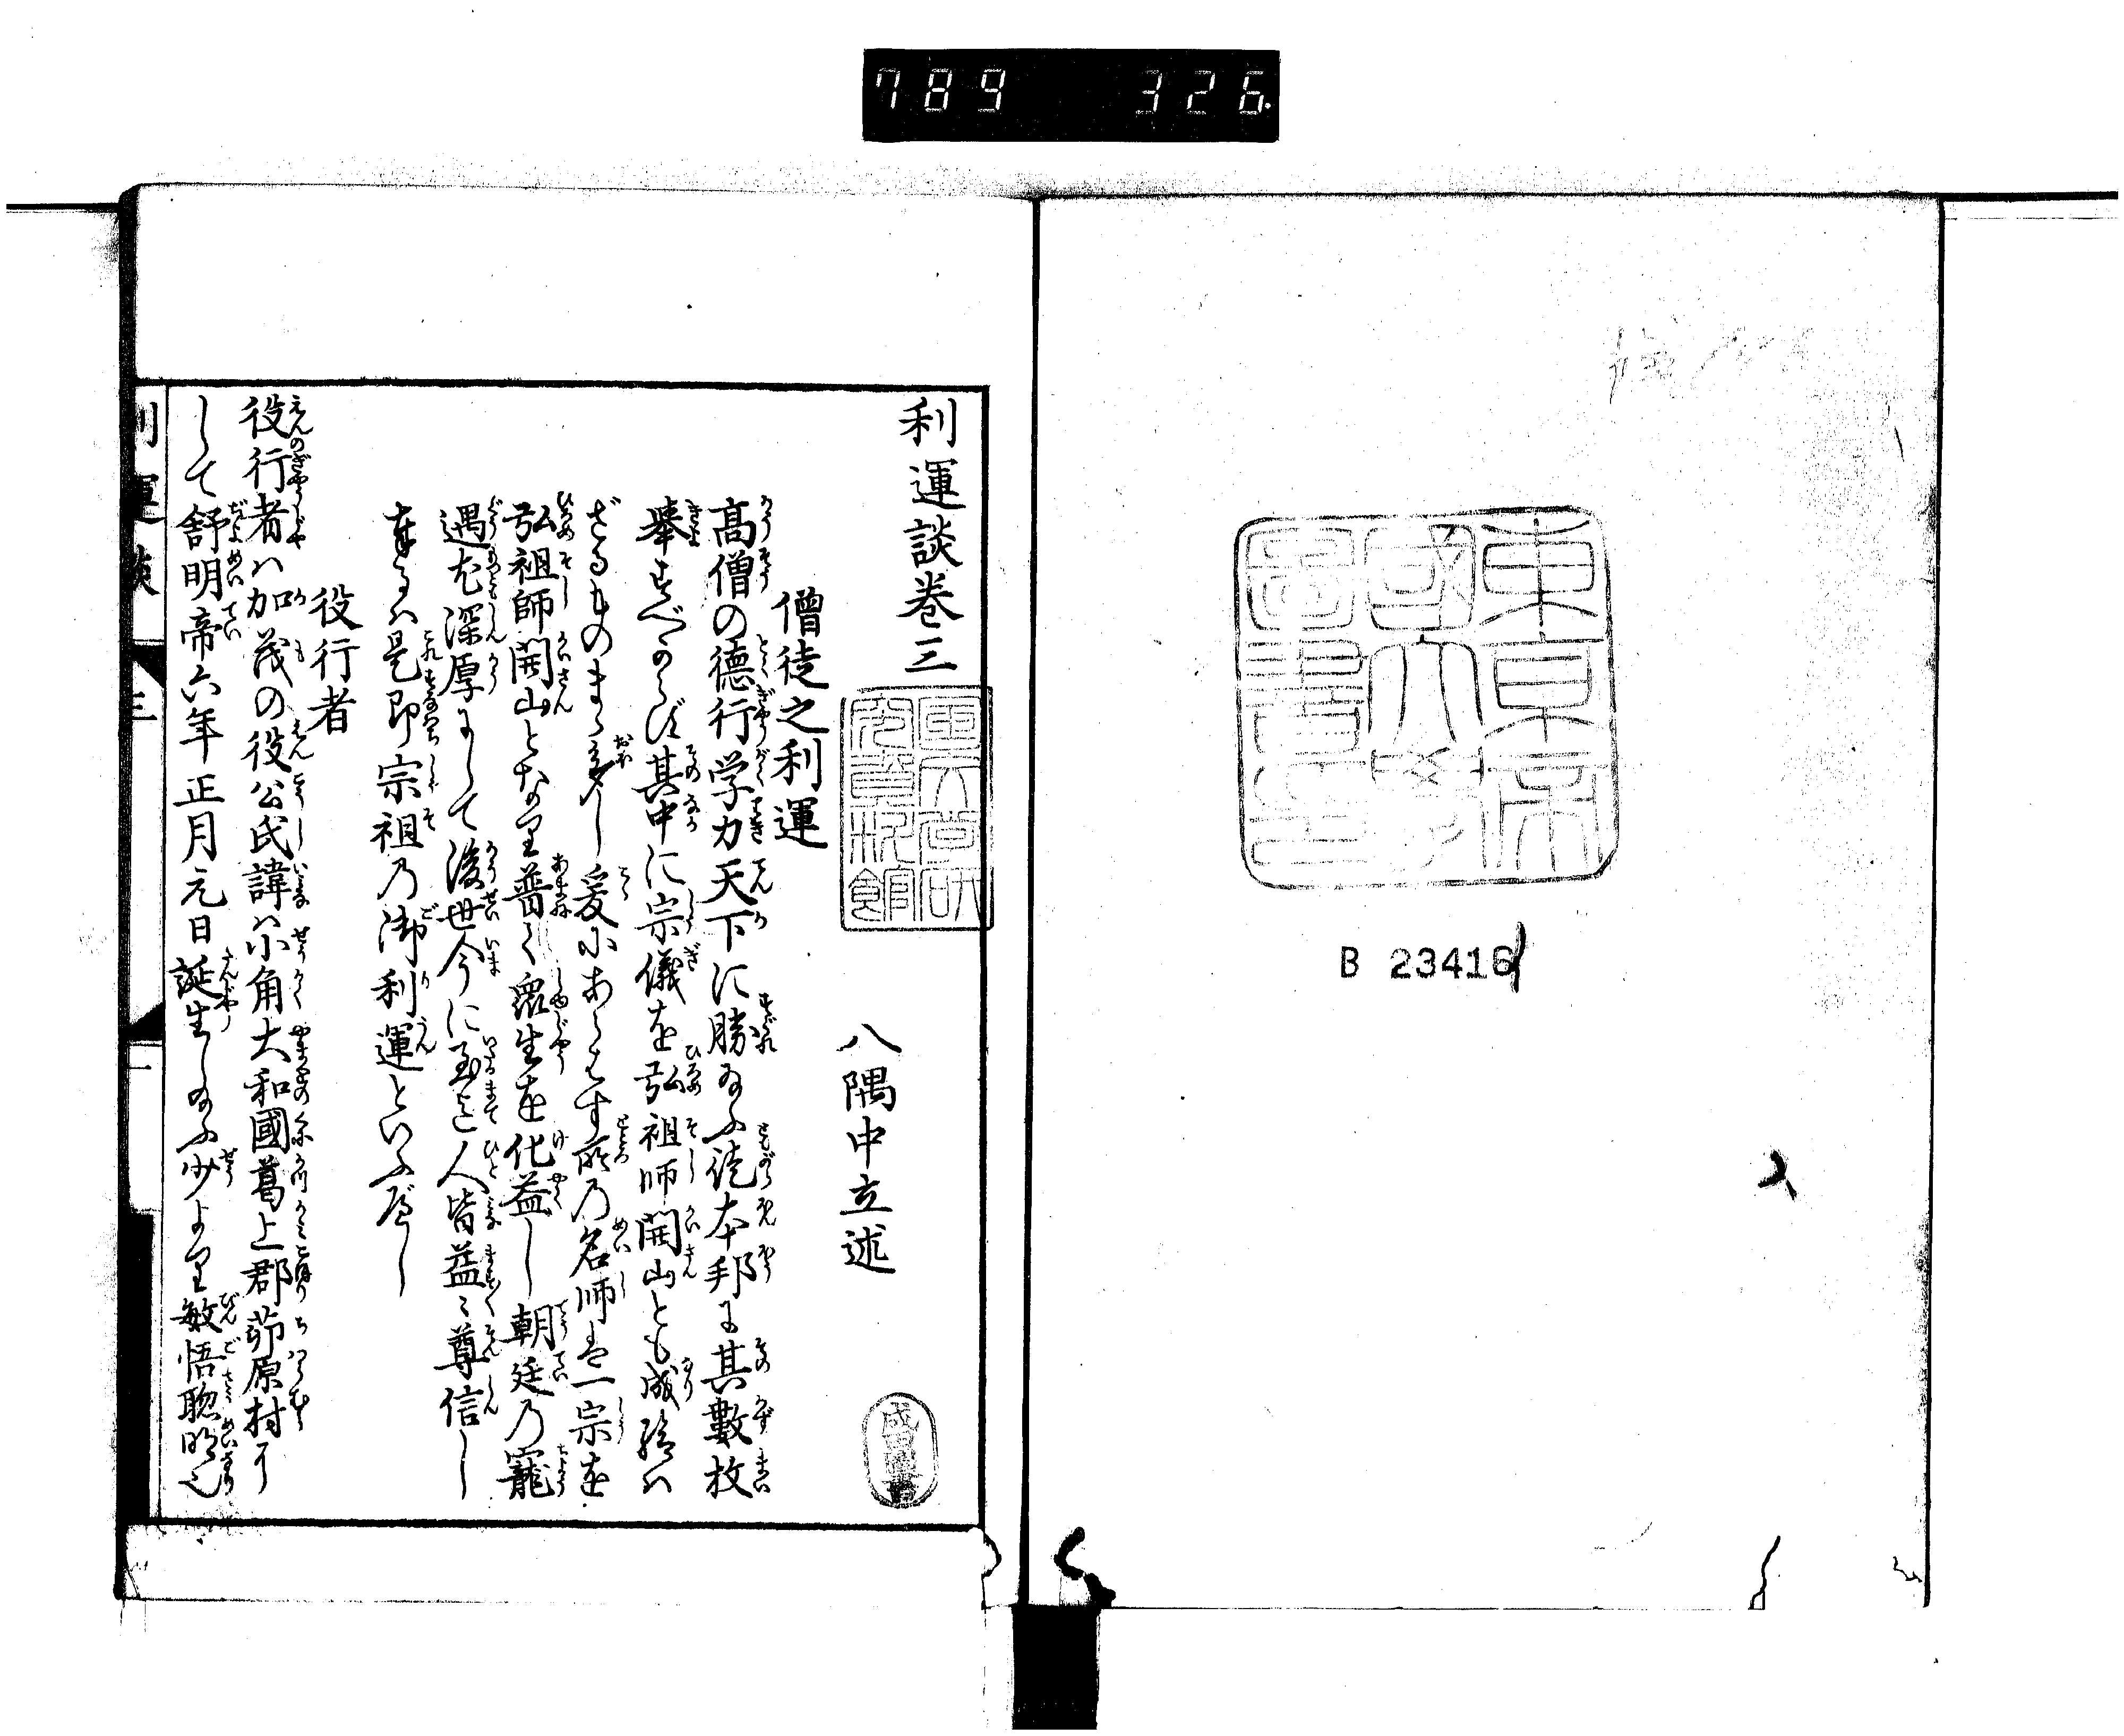 789 326
東京帝
國大學
圖書印
B 23416
利運談卷三
八隅中立述
僧徒之利運
高僧の德行学力天下に勝給ふ徒本邦に其數枚
擧すべからず其中に宗儀を弘祖師開山とも成給ハ
ざるものまゝ多し爰にあらはす所の名師は一宗を
弘祖師開山となり普く衆生を化益し朝廷の寵
遇尤深厚にして後世今に至迄人皆益〻尊信し
奉るハ是即宗祖の御利運といふべし
役行者
役行者ハ加茂の役公氏諱ハ小角大和國葛上郡茆原村に
して舒明帝六年正月元日誕生し給ふ少より敏悟聡明也
利運談 三 一